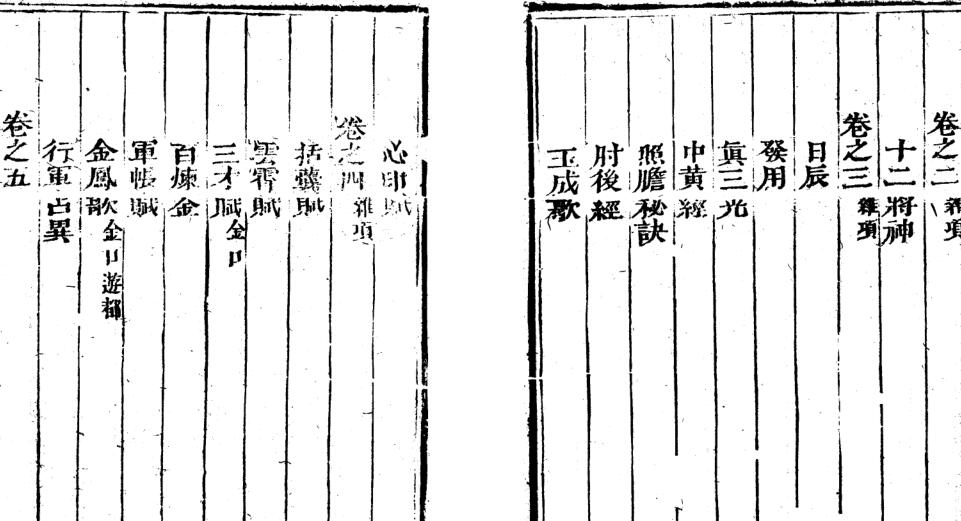 卷之二 雜項
十二將神
卷之三 雜項
日辰
發用
眞三光
中黃經
照膽秘訣
肘後經
玉成歌
心印賦
卷之四 雜項
括囊賦
雲霄賦
三才賦 金口
百煉金
軍帳賦
金鳳歌 金口遊都
行軍占異
卷之五